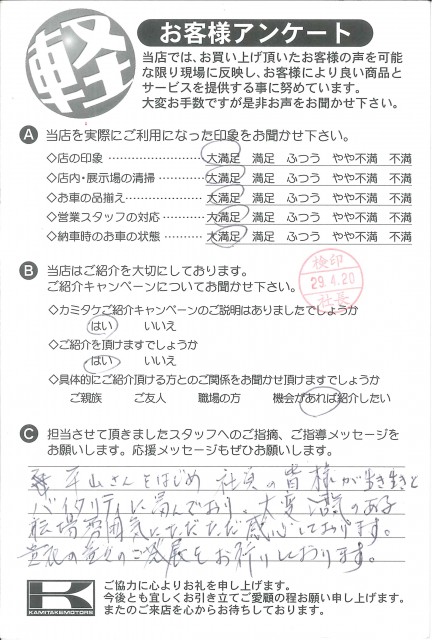 軽
お客様アンケート
当店では、お買い上げ頂いたお客様の声を可能
な限り現場に反映し、お客様により良い商品と
サービスを提供する事に努めています。
大変お手数ですが是非お声をお聞かせ下さい。
A 当店を実際にご利用になった印象をお聞かせ下さい。
◇店の印象 大満足 満足 ふつう やや不満 不満
◇店内・展示場の清掃 大満足 満足 ふつう やや不満 不満
◇お車の品揃え 大満足 満足 ふつう やや不満 不満
◇営業スタッフの対応 大満足 満足 ふつう やや不満 不満
◇納車時のお車の状態 大満足 満足 ふつう やや不満 不満
B 当店はご紹介を大切にしております。
ご紹介キャンペーンについてお聞かせ下さい。
検印
29.4.20
社長
◇カミタケご紹介キャンペーンのご説明はありましたでしょうか
はい いいえ
◇ご紹介を頂けますでしょうか
はい いいえ
◇具体的にご紹介頂ける方とのご関係をお聞かせ頂けますでしょうか
ご親族 ご友人 職場の方 機会があれば紹介したい
C 担当させて頂きましたスタッフへのご指摘、ご指導メッセージを
お願いします。応援メッセージもぜひお願します。
平山さんをはじめ 社員の皆様が生き生きと
バイタリティに富んでおり、大変活気のある
職場雰囲気にただただ感心しております。
貴社の益々のご発展をお祈りしております。
K
KAMITAKEMOTORS
ご協力に心よりお礼を申し上げます。
今後とも宜しくお引き立てご愛顧の程お願い申し上げます。
またのご来店を心からお待ちしております。